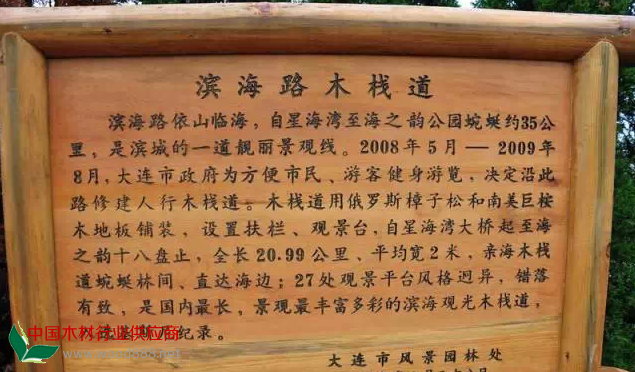 滨海路木栈道
滨海路依山临海，自星海湾至海之韵公园蜿蜒约35公
里，是滨城的一道靓丽景观线。2008年5月—2009年
8月，大连市政府为方便市民、游客健身游览，决定沿此
路修建人行木栈道。木栈道用俄罗斯樟子松和南美巨桉
木地板铺装，设置扶栏、观景台，自星海湾大桥起至海
之韵十八盘止，全长20.99公里、平均宽2米，亲海木栈
道蜿蜒林间、直达海边；27处观景平台风格迥异，错落
有致，是国内最长，景观最丰富多彩的滨海观光木栈道，
基斯尼纪录。
中国木材行业供应商
大连市风景园林处